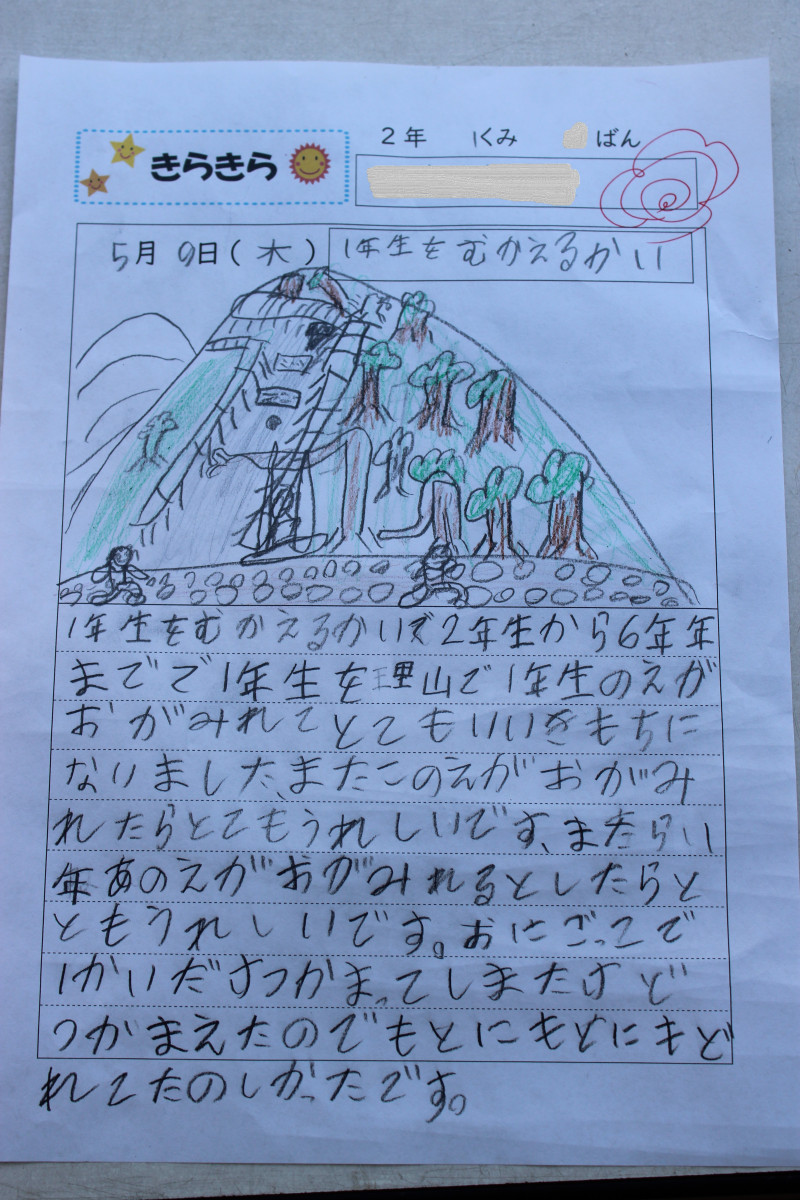 2年 1くみ ばん
きらきら
5月9日(木) 1年生をむかえるかい
1年生をむかえるかいで2年生から6年年
までで1年生を里山で1年生のえが
おがみれてとてもいいきもちに
なりました、またこのえがおがみ
れたらとてもうれしいです、またらい
年あのえがおがみれるとしたらと
ともうれしいです。おにごっこで
1かいだけつかまってしまたけど
つかまえたのでもとにもどにもど
れてたのしかったです。